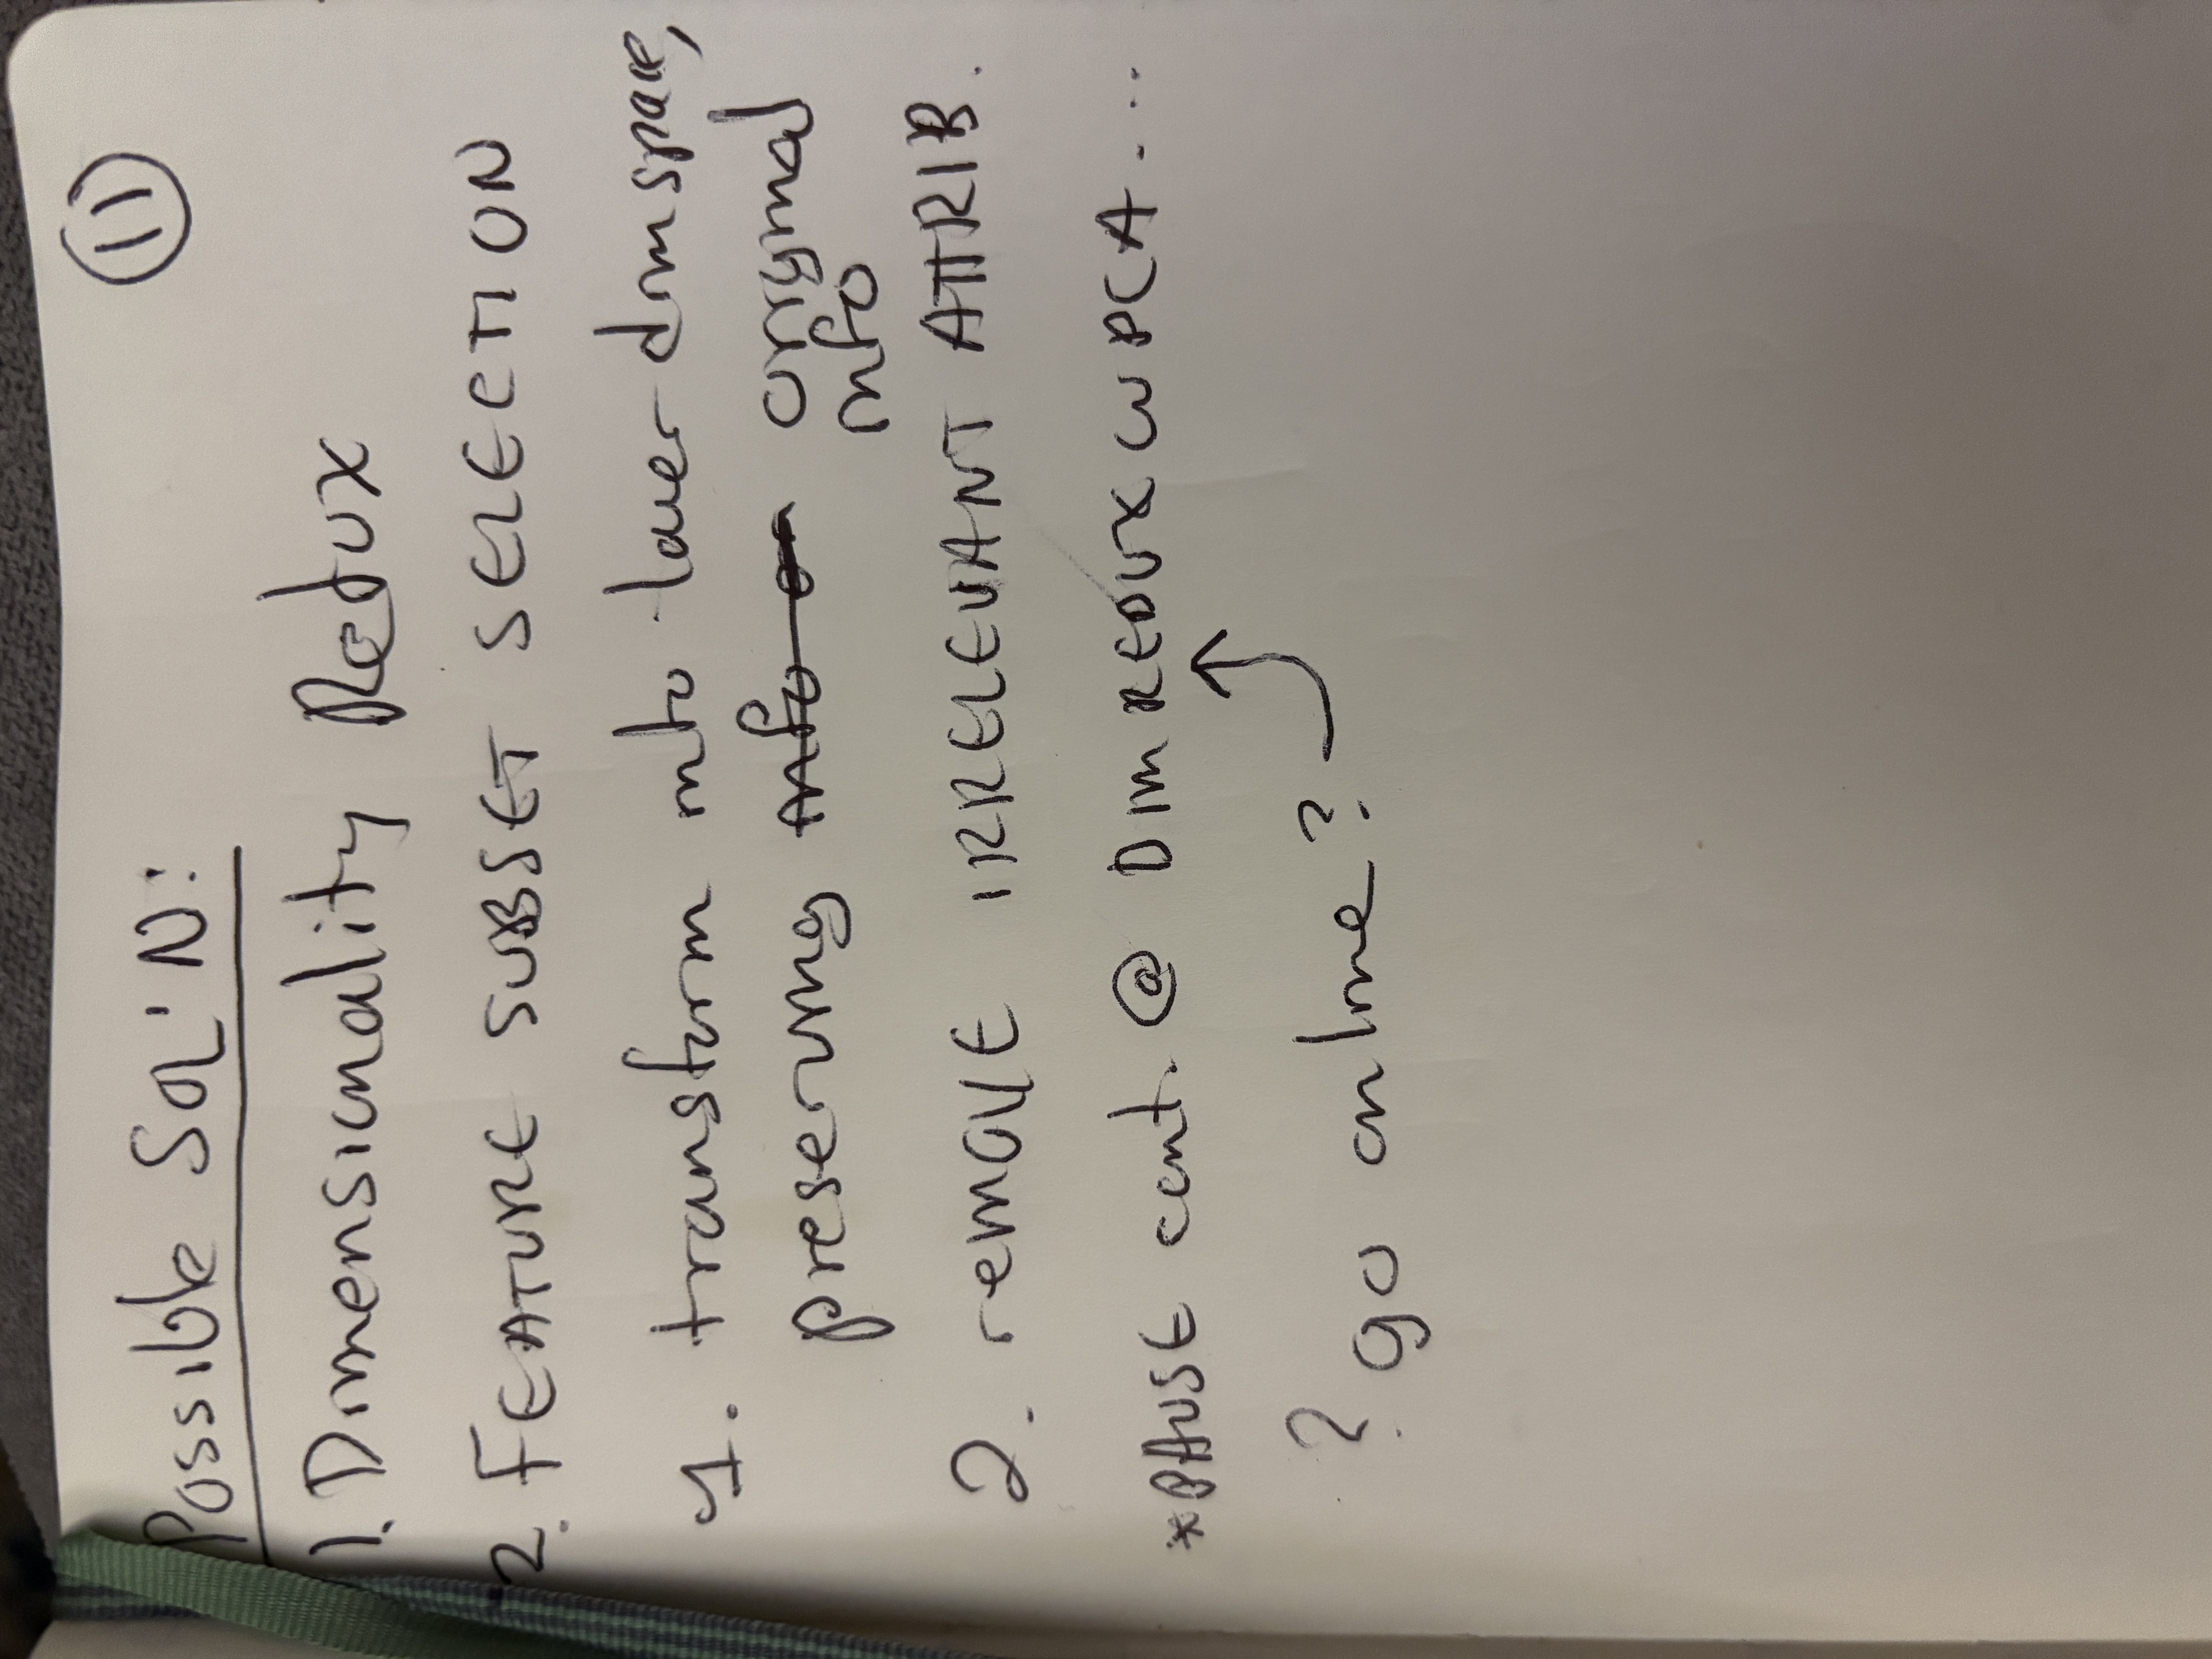 11
Possible SOL'N:
1. Dimensionality Redux
2. FEATURE SUBSET SELECTION
1. transform into lower dim space,
preserving info on original
info
2. remove IRRELEVANT ATTRIB.
*PAUSE cont. @ DIM REDUX W PCA...
? go online?